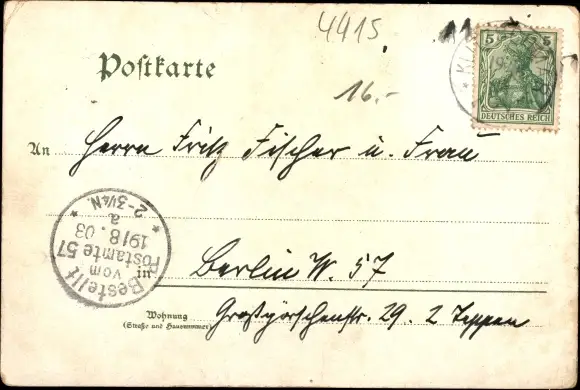 4415
16.-
5 5
DEUTSCHES REICH
Postkarte
An Herrn Fritz Fischer u. Frau
Bestellt
vom
Postamte 57
19/8.03
a
* 2-3¼N. *
in Berlin W. 57
Wohnung
(Straße und Hausnummer)
Großgörschenstr. 29. 2 Treppen